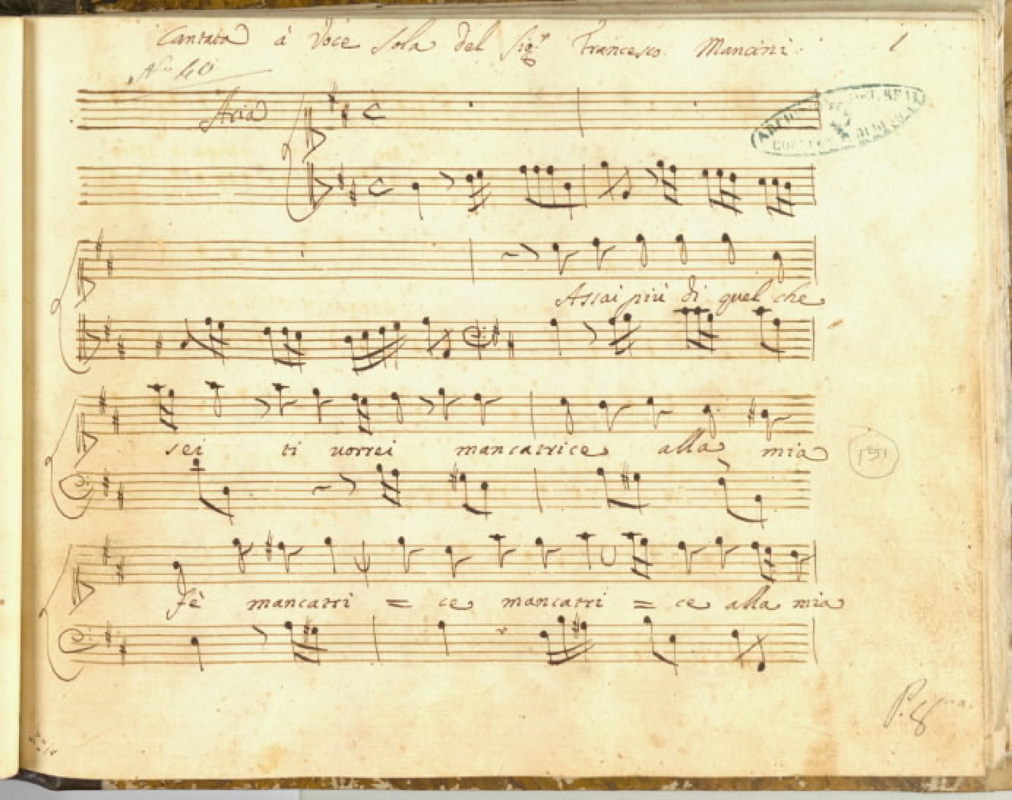 Cantata à Voce Sola del Sig.r Francesco Mancini. 1
N.o 40
Aria
Assai più di quel che
sei ti vorrei mancatrice alla mia
151
fè mancatri = ce mancatri = ce alla mia